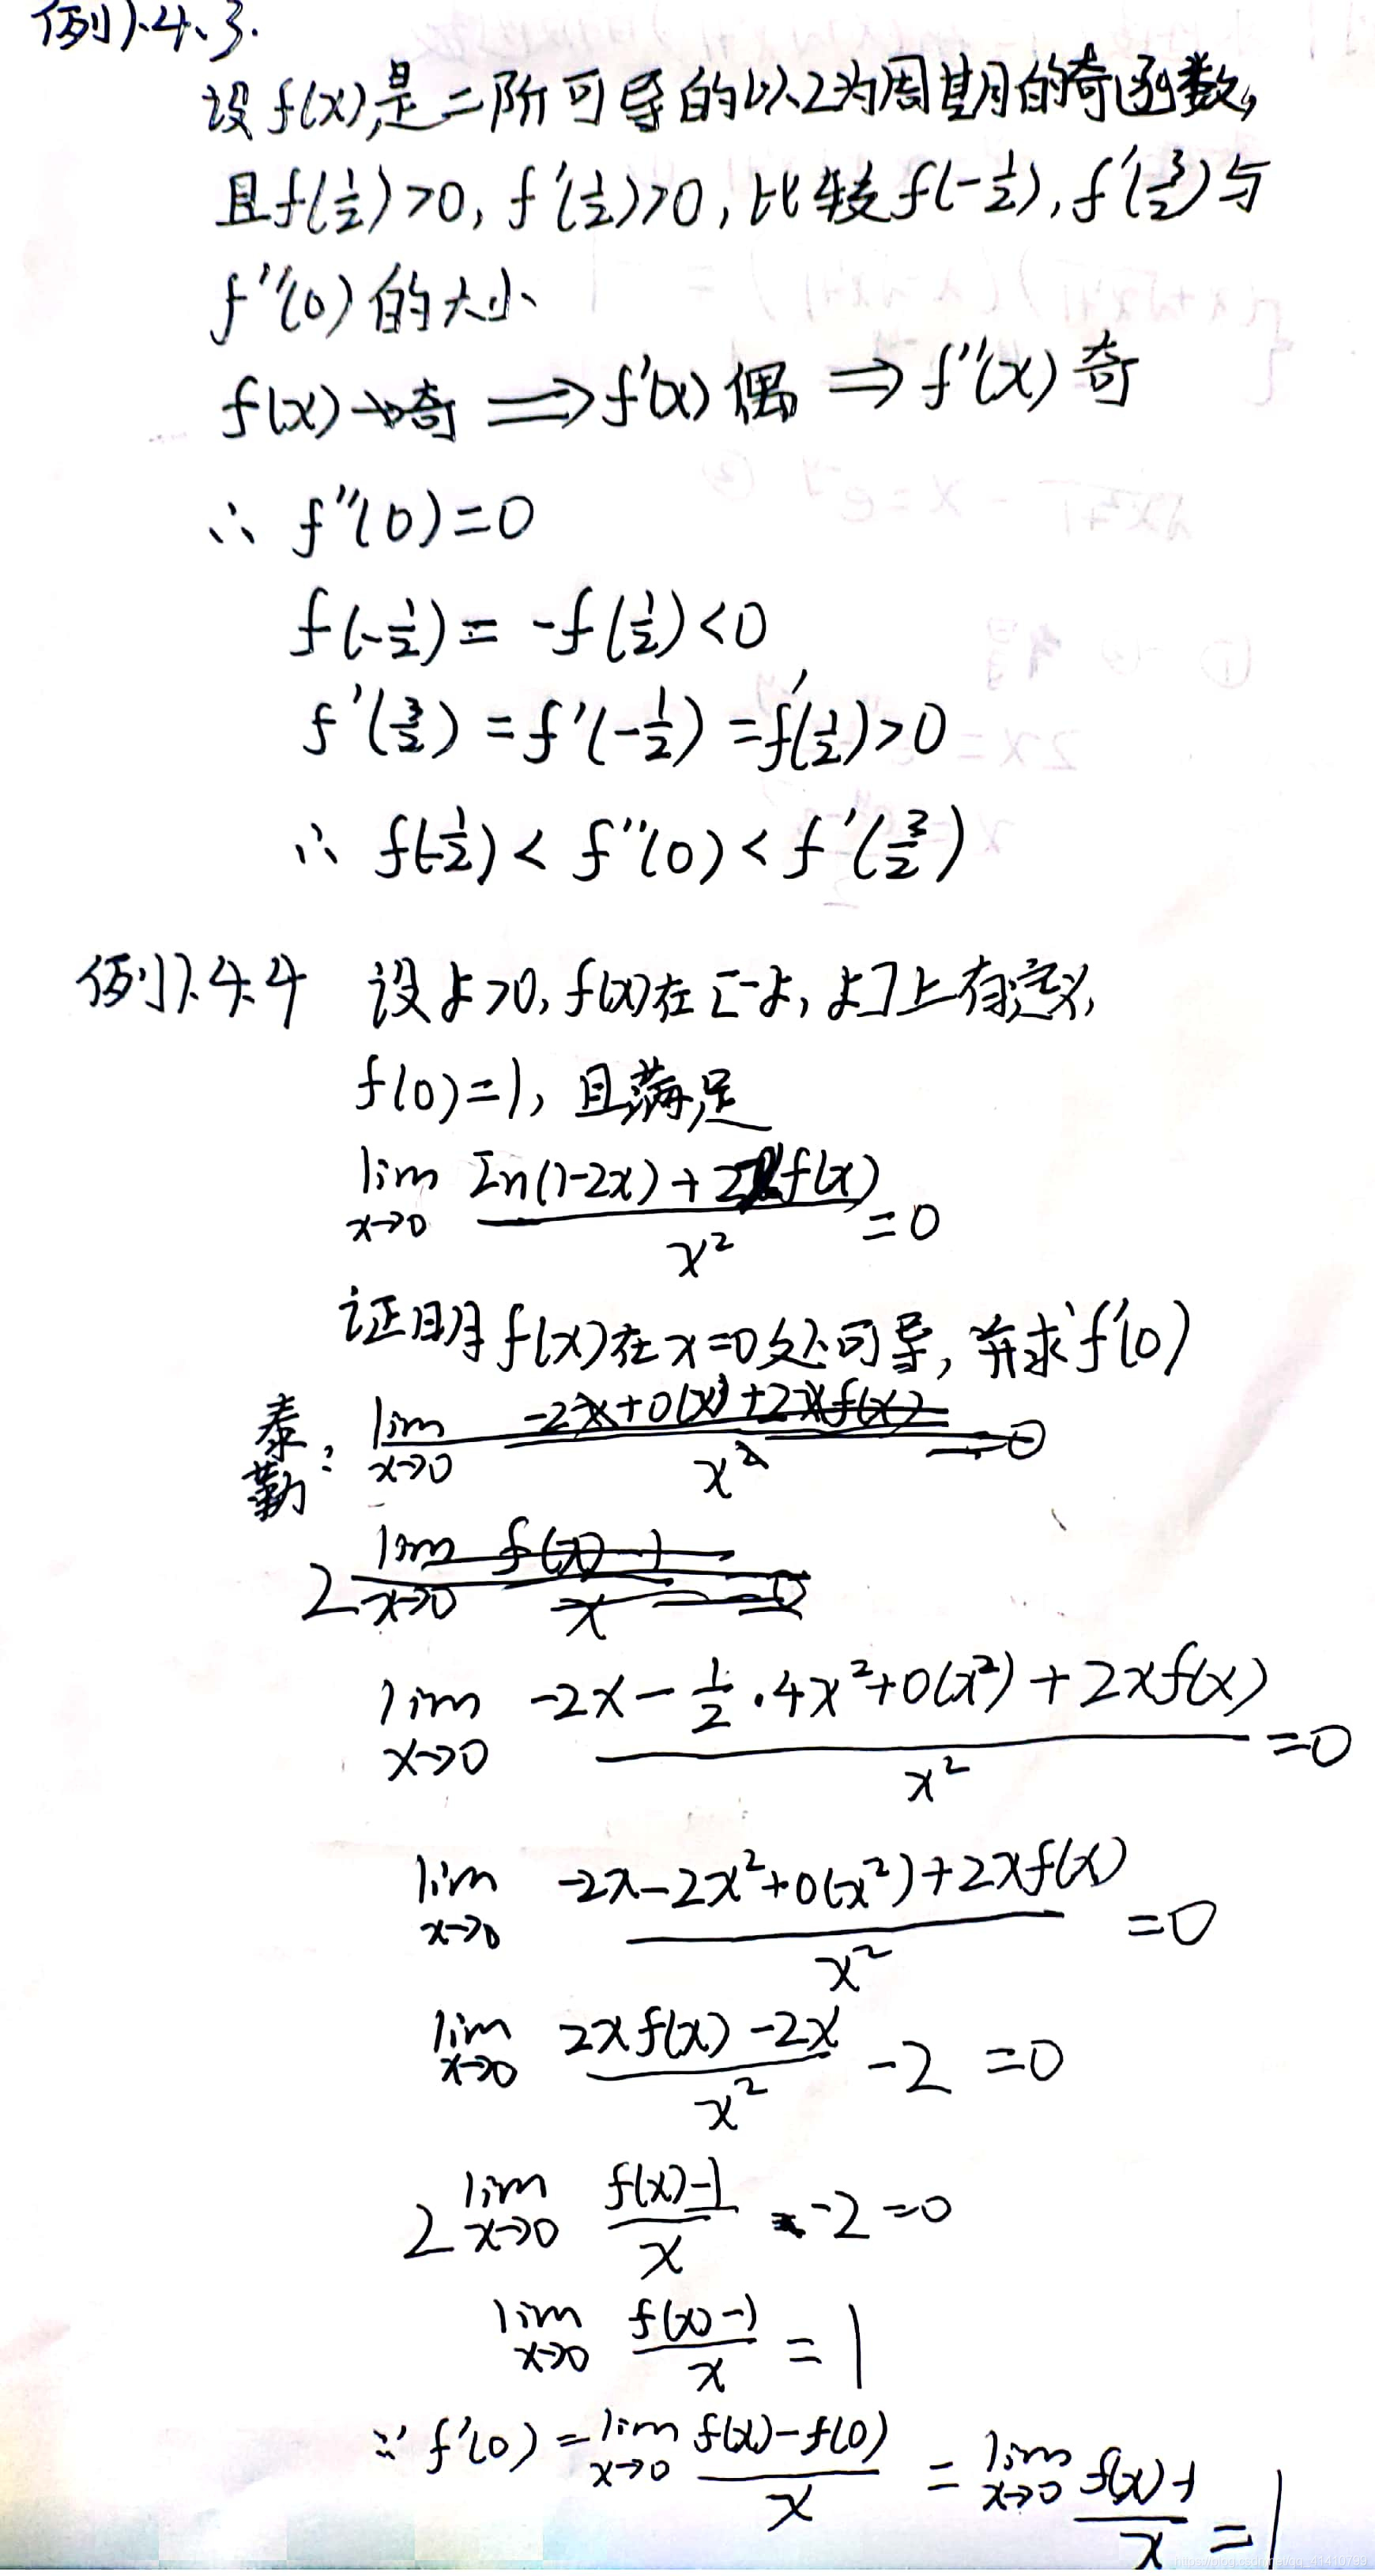 例1.4.3.
设f(x)是二阶可导的以2为周期的奇函数,
且f(1/2)>0, f'(1/2)>0, 比较f(-1/2), f'(3/2)与
f''(0)的大小
f(x)→奇 ⟹ f'(x)偶 ⟹ f''(x)奇
∴ f''(0)=0
f(-1/2) = -f(1/2)<0
f'(3/2) = f'(-1/2) = f'(1/2)>0
∴ f(-1/2) < f''(0) < f'(3/2)
例1.4.4 设δ>0, f(x)在[-δ, δ]上有定义,
f(0)=1, 且满足
lim x→0 (In(1-2x)+2xf(x))/x² =0
证明f(x)在x=0处可导, 并求f'(0)
泰勒: lim x→0 (-2x+o(x)+2xf(x))/x² =0
2 lim x→0 (f(x)-1)/x =0
lim x→0 (-2x-1/2·4x²+o(x²)+2xf(x))/x² =0
lim x→0 (-2x-2x²+o(x²)+2xf(x))/x² =0
lim x→0 (2xf(x)-2x)/x² -2 =0
2 lim x→0 (f(x)-1)/x -2=0
lim x→0 (f(x)-1)/x = 1
∵ f'(0) = lim x→0 (f(x)-f(0))/x = lim x→0 (f(x)-1)/x =1